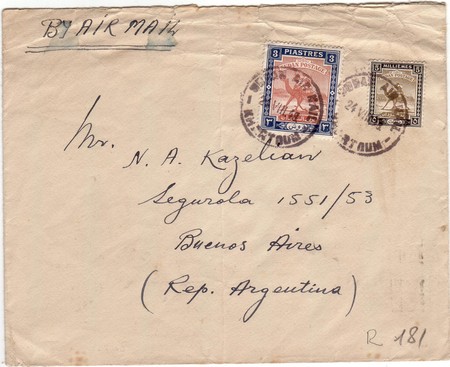 BY AIR MAIL
3 PIASTRES 3
SUDAN POSTAGE
٣ ٣
5 MILLIEMES 5
AIR MAIL
KHARTOUM
24 VIII
KHARTOUM
Mr.
N. A. Kazelian
Segurola 1551/53
Buenos Aires
(Rep. Argentina)
R 181